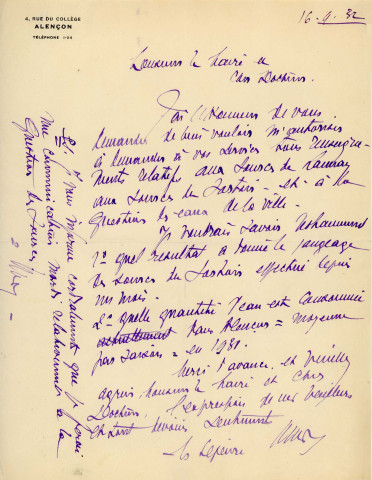 4, RUE DU COLLÈGE
ALENÇON
TÉLÉPHONE
16-9-32
Monsieur le Maire et
Cher Docteur.
J'ai l'honneur de vous
demander de bien vouloir m'autoriser
à demander à vos services tous renseigne-
ments relatifs aux sources de
aux sources de et à la
question des eaux de la ville.
Je voudrais savoir notamment
1° quel résultat a donné le jaugeage
des sources du effectué depuis
mois.
2° quelle quantité d'eau est consommée
actuellement dans Alençon = moyenne
par = en 1931.
Merci d'avance et veuillez
agréer, Monsieur le Maire et Cher
Docteur, l'expression de mes meilleurs
et dévoués sentiments
P.S. Je vous informe cordialement que je ferai
une communication mardi relativement à la
question des sources